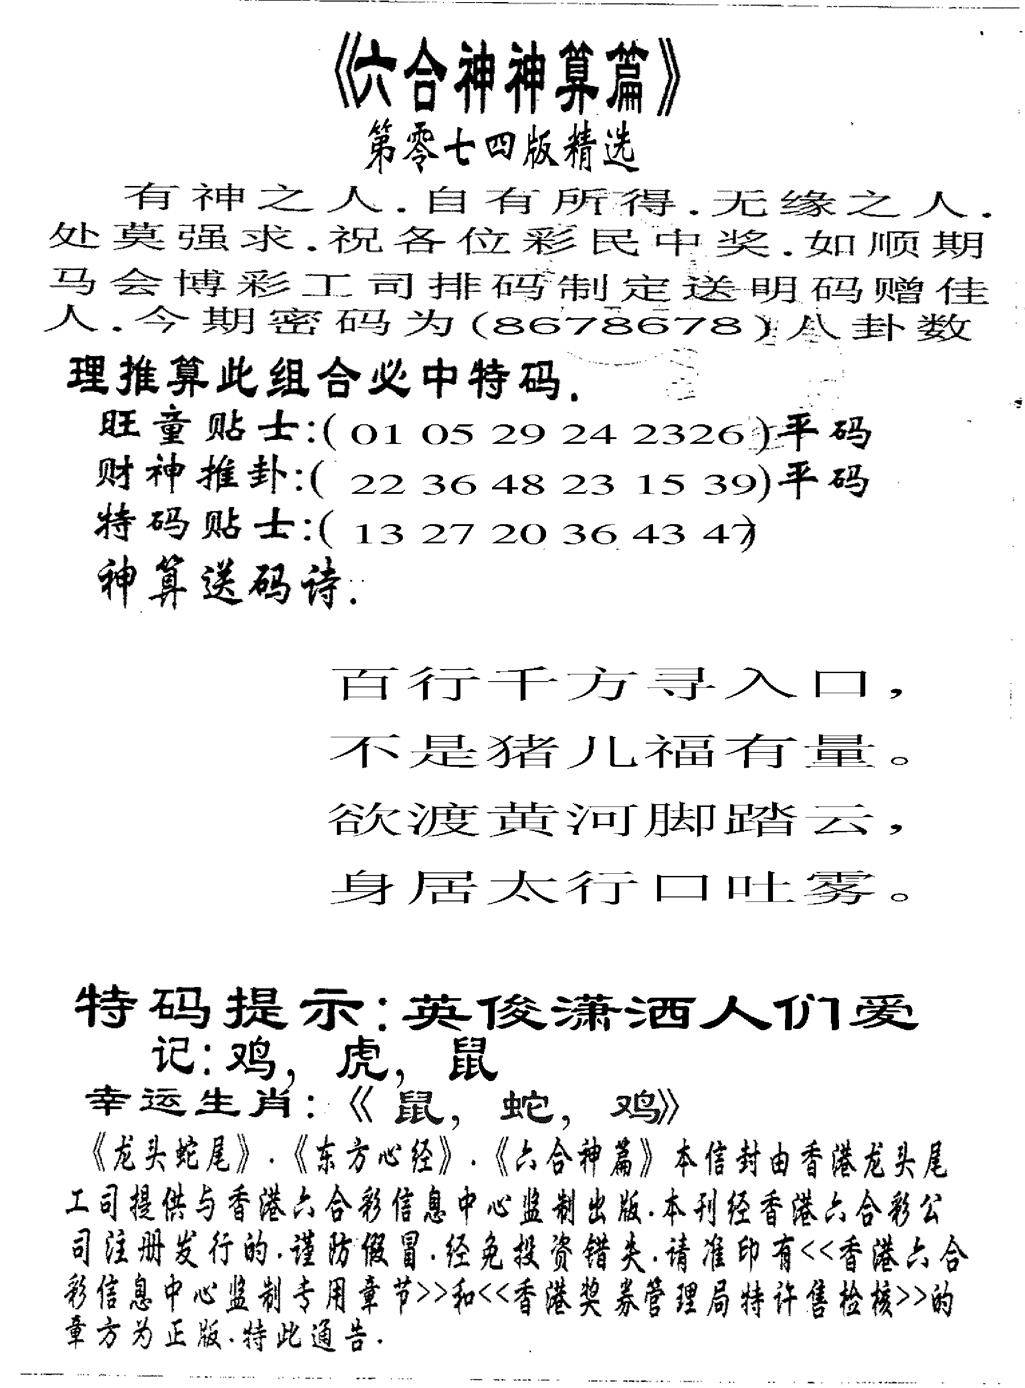 《六合神神算篇》
第零七四版精选
有神之人.自有所得.无缘之人.
处莫强求.祝各位彩民中奖.如顺期
马会博彩工司排码制定送明码赠佳
人.今期密码为(8678678)八卦数
理推算此组合必中特码.
旺童贴士:( 01 05 29 24 2326 )平码
财神推卦:( 22 36 48 23 15 39)平码
特码贴士:( 13 27 20 36 43 47)
神算送码诗.
百行千方寻入口，
不是猪儿福有量。
欲渡黄河脚踏云，
身居太行口吐雾。
特码提示:英俊潇洒人们爱
记:鸡，虎，鼠
幸运生肖:《鼠，蛇，鸡》
《龙头蛇尾》.《东方心经》.《六合神篇》本信封由香港龙头尾
工司提供与香港六合彩信息中心监制出版.本刊经香港六合彩公
司注册发行的.谨防假冒.经免投资错失.请准印有<<香港六合
彩信息中心监制专用章节>>和<<香港奖券管理局特许售检核>>的
章方为正版.特此通告.